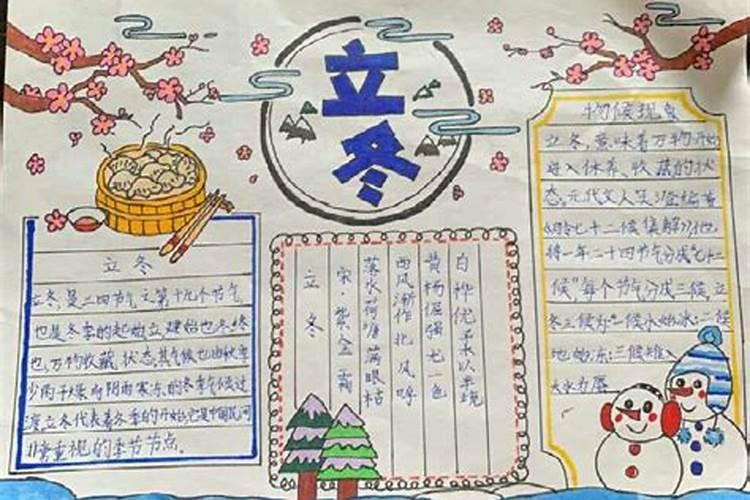 立冬
立冬
立冬,是二四节气之第十九个节气,
也是冬季的起始立,建始也冬,终
也,万物收藏,状态,其气候也由秋季
少雨干燥向阴雨寒冻的冬季气候过
渡立冬代表着冬季的开始,它是中国民间
非常重视的季节节点.
立冬
宋·紫金霜
落水荷塘满眼枯
西风渐作北风呼
黄杨倔强尤一色
白桦优
物候现象
立冬,意味着万物开始
进入休养、收藏的状
态,元代文人吴
七十二候集解》
将一年二十四节气分成"七十二
候"每个节气分成三候,立
冬三候为一候水始冰:二候
地始冻:三候雉入
大水为蜃